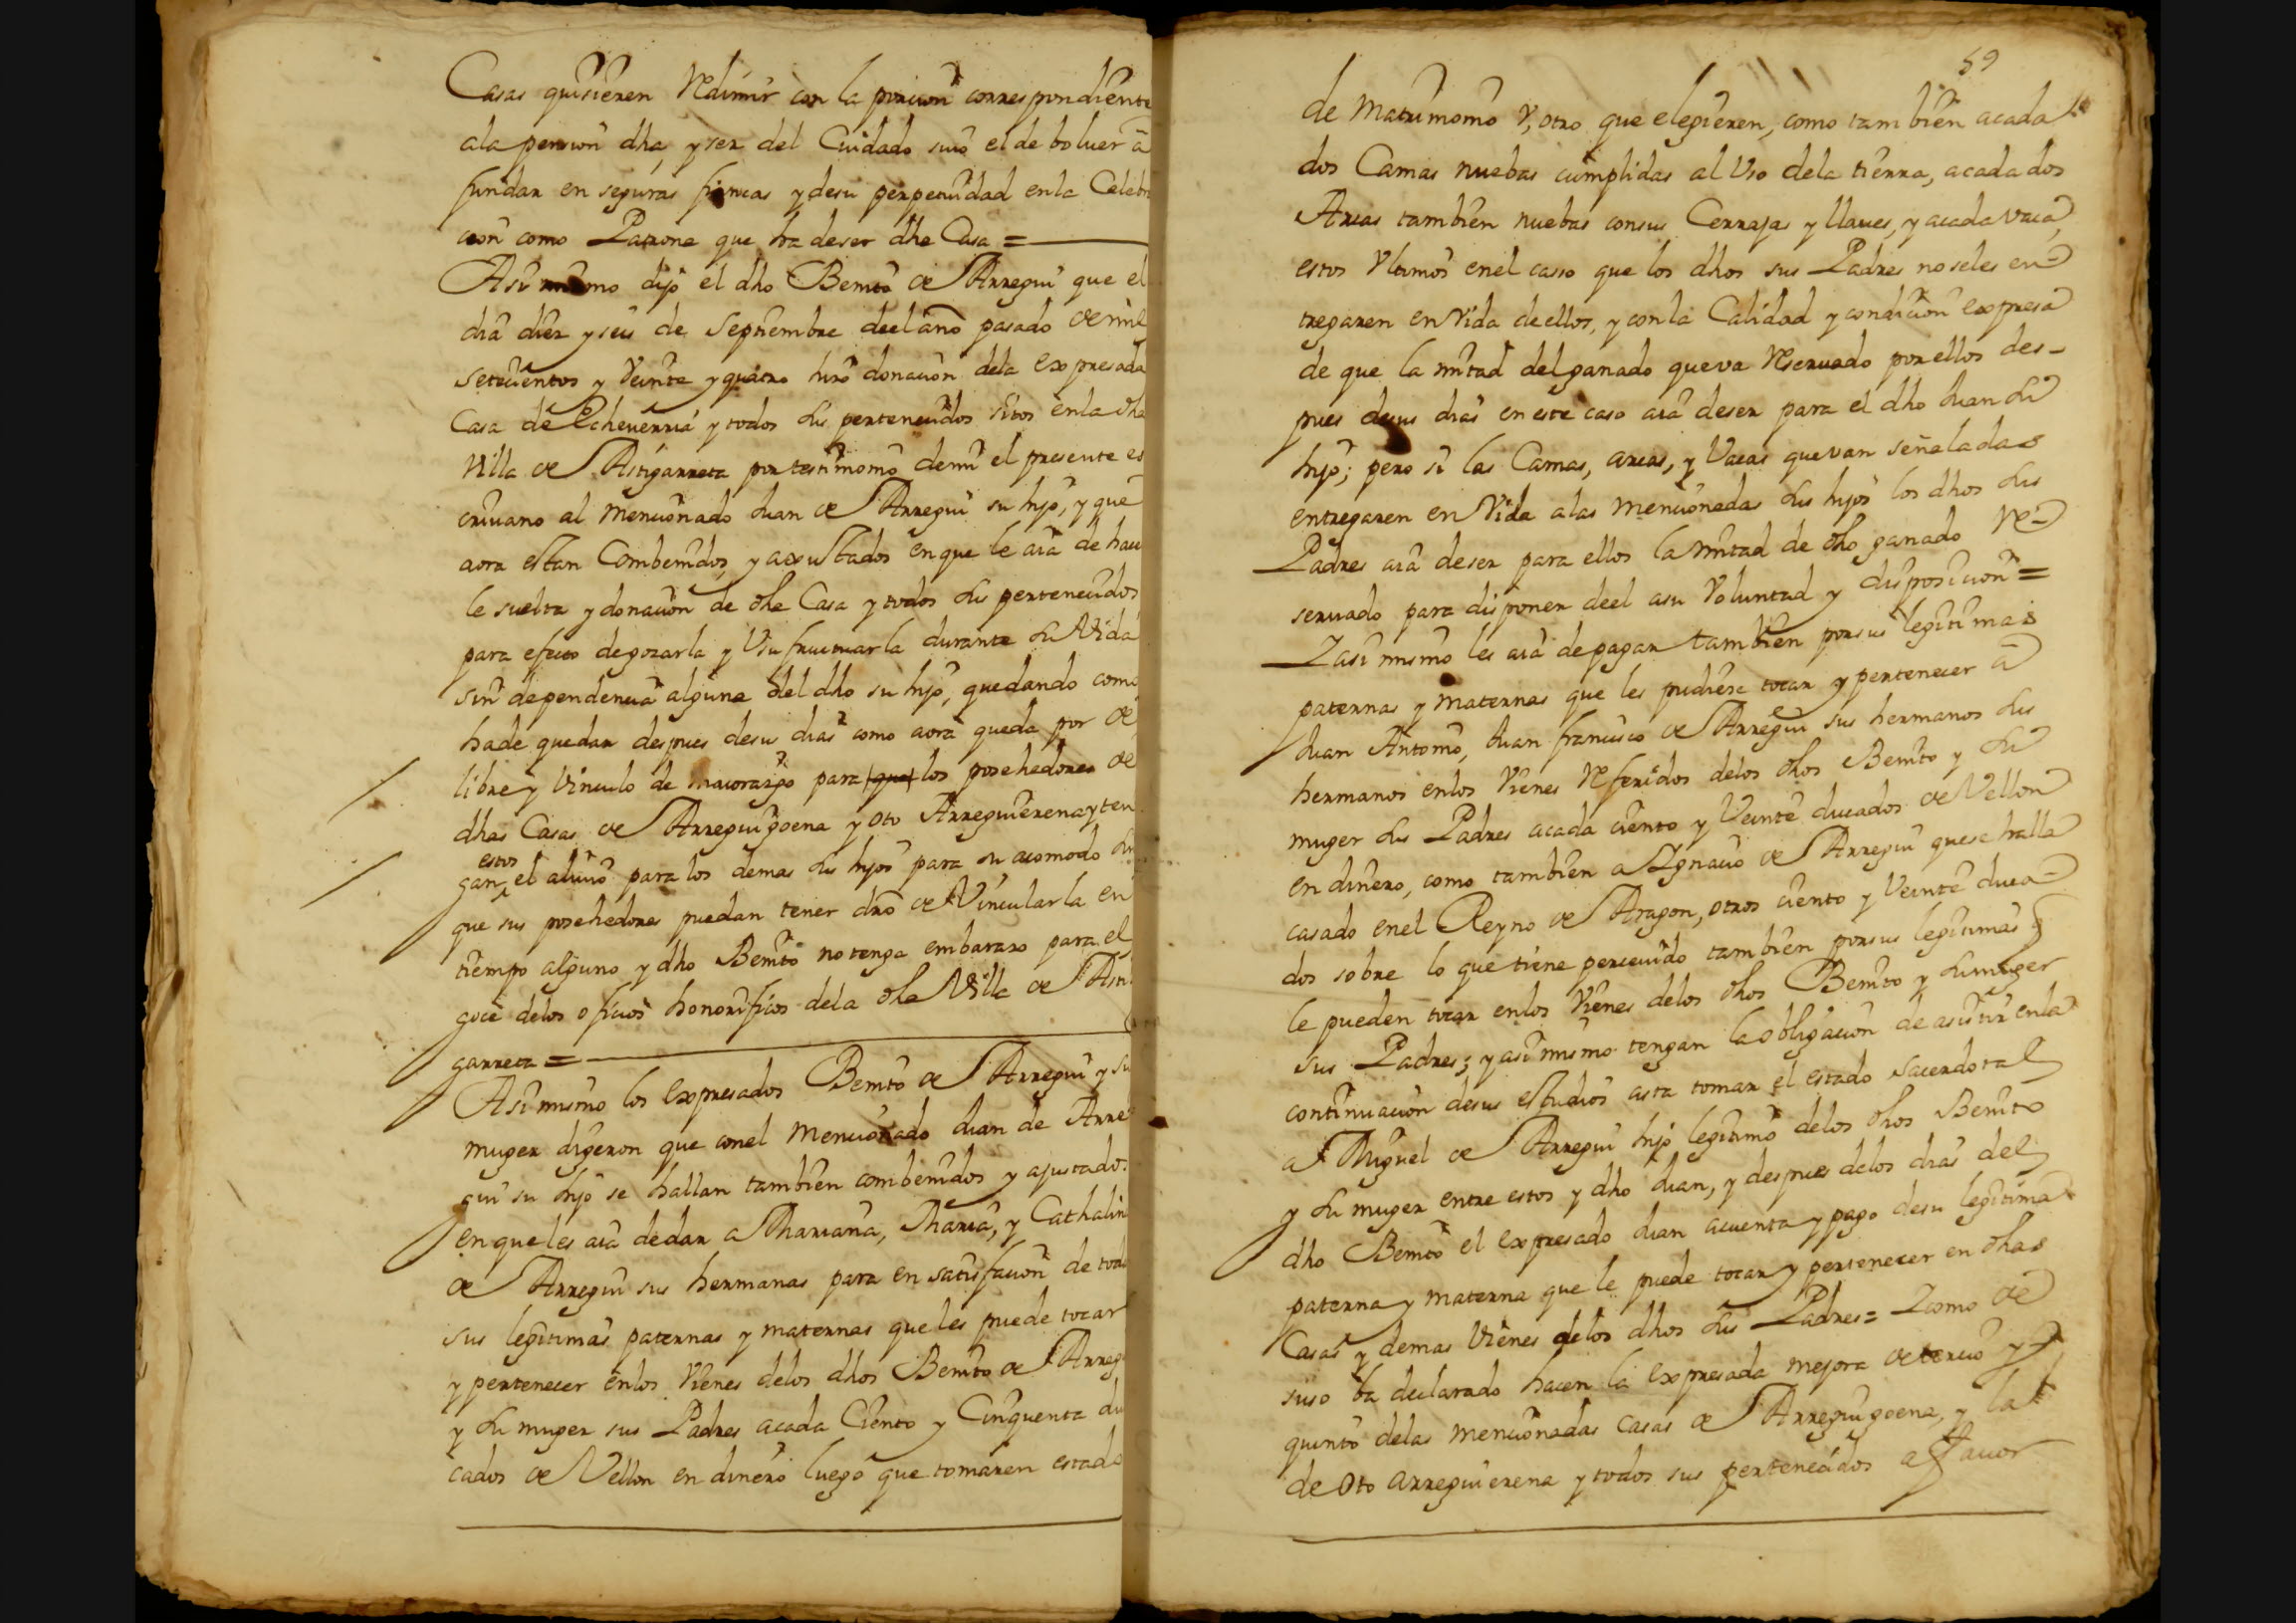 Casas quisieren Redimir con la porcion correspondiente
ala pension dha, y ser del Cuidado suio el de boluer à
fundar en seguras fincas y desu perpetuidad enla Celebra
cion como Patrona que ha deser dha Casa =
Asi mismo dijo el dho Benito de Arregui que el
dia diez y seis de Septiembre deel año pasado de mil
setecientos y Veinte y quatro hizo donacion dela expresada
Casa de Echeuerria y todos sus pertenecidos sitos enla dha
Villa de Astigarreta por testimonio demi el presente es
criuano al mencionado Juan de Arregui su hijo, y que
aora estan Combenidos, y axustados en que le aia de hacer
le suelta y donacion de dha Casa y todos sus pertenecidos
para efecto degozarla y Vsufructuarla durante su Vida
sin dependencia alguna del dho su hijo, quedando como
hade quedar despues desu dias como aora queda por de
libre y Vinculo de maiorazgo para (que) los posehedores de
dhas Casas de Arreguigoena y Oto Arreguierena y ten
estos
gan el aliuio para los demas sus hijos para su acomodo sin
que sus posehedores puedan tener dro de Vincularla en
tiempo alguno y dho Benito no tenga embarazo para el
goce delos oficios honorificos dela dha Villa de Asti
garreta =
Asi mismo los expresados Benito de Arregui y su
muger digeron que conel mencionado Juan de Arre
gui su hijo se hallan tambien combenidos y ajustados
en que les aia dedar a Mariana, Maria, y Cathalina
de Arregui sus hermanas para en satisfacion de todas
sus legitimas paternas y maternas que les puede tocar
y pertenecer enlos Vienes delos dhos Benito de Arregui
y su muger sus Padres acada Ciento y Cinquenta du
cados de Vellon en dinero luego que tomaren estado
59
de Matrimonio V, otro que elegieren, como tambien acada
dos Camas nuebas cumplidas al Vso dela tierra, acada dos
Arcas tambien nuebas consus Cerrajas y llaues, y acada vaca,
estos Vltimos enel casso que los dhos sus Padres no seles en
tregaren en Vida de ellos, y con la Calidad y condicion expresa
de que la mitad del ganado que va Reseruado por ellos des-
pues desus dias en este caso aia deser para el dho Juan su
hijo; pero si las Camas, arcas, y Vacas que van señaladas
entregaren en Vida alas mencionadas sus hijos los dhos sus
Padres aia deser para ellos la mitad de dho ganado Re-
seruado para disponer deel asu Voluntad y disposicion =
Y asi mismo les aia depagar tambien por sus legitimas
paternas y maternas que les pudiere tocar y pertenecer à
Juan Antonio, Juan francisco de Arregui sus hermanos sus
hermanos enlos Vienes Referidos delos dhos Benito y su
muger sus Padres acada ciento y Veinte ducados de Vellon
en dinero, como tambien a Ignacio de Arregui que se halla
casado enel Reyno de Aragon, otros ciento y Veinte duca-
dos sobre lo que tiene perceuido tambien por sus legitimas
le pueden tocar enlos Vienes delos dhos Benito y su muger
sus Padres; y asi mismo tengan la obligacion de asistir enla
continuacion desus estudios asta tomar el estado sacerdotal
a Miguel de Arregui hijo legitimo delos dhos Benito
y su muger entre estos y dho Juan, y despues delos dias del
dho Benito el expresado Juan acuenta y pago desu legitima
paterna y materna que le puede tocar y pertenecer en dhas
Casas y demas Vienes delos dhos sus Padres = Y como de
suso ba declarado hacen la expresada mejora de tercio y
quinto delas mencionadas casas de Arreguigoena, y la
de Oto arreguierena y todos sus pertenecidos a fauor